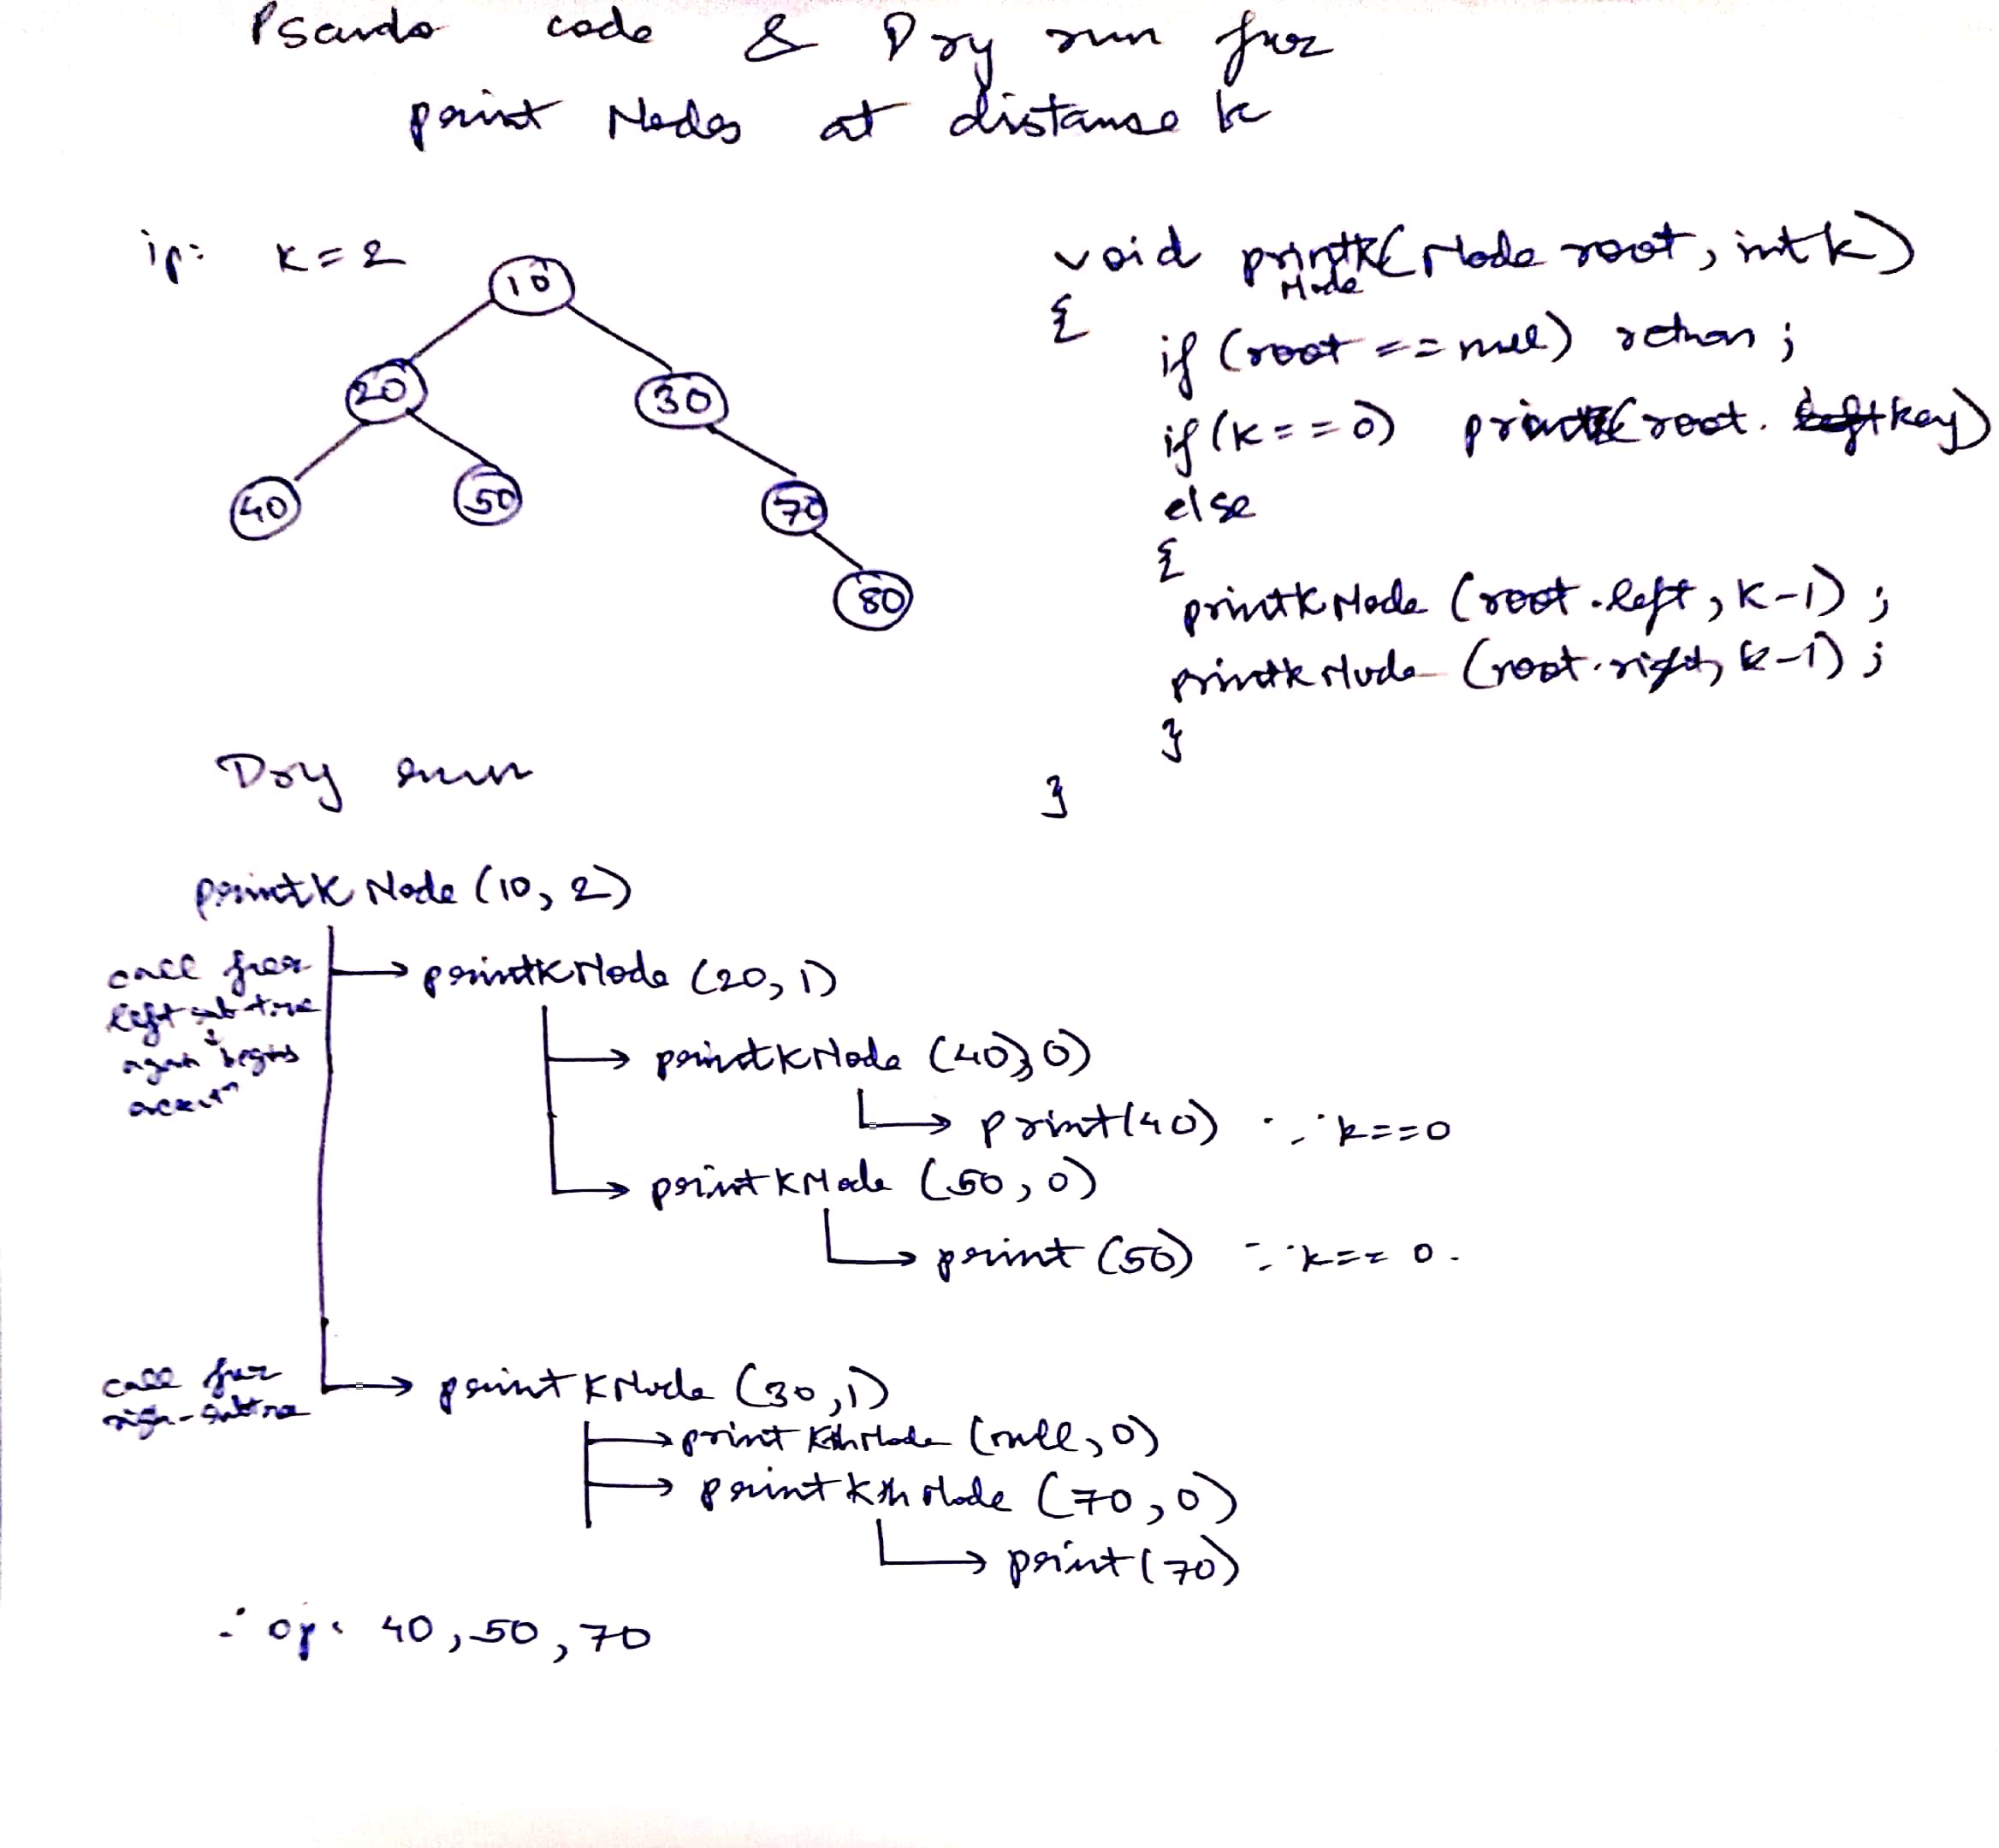 Pseudo code & Dry run for
print Nodes at distance k
ip: K = 2
10
20
30
40
50
70
80
void printK(Node root, int k)
Node
{
if (root == null) return;
if (K == 0) print(root. key)
else
{
printKNode (root.left, K-1);
printkNode (root.right, k-1);
}
}
Dry run
printK Node (10, 2)
call for
left sub tree
again begins
printKNode (20, 1)
printKNode (40, 0)
print(40) ∵ k==0
printKNode (50, 0)
print (50) ∵ k == 0.
call for
printKNode (30, 1)
print KthNode (null, 0)
print Kth Node (70, 0)
print(70)
∴ op: 40, 50, 70